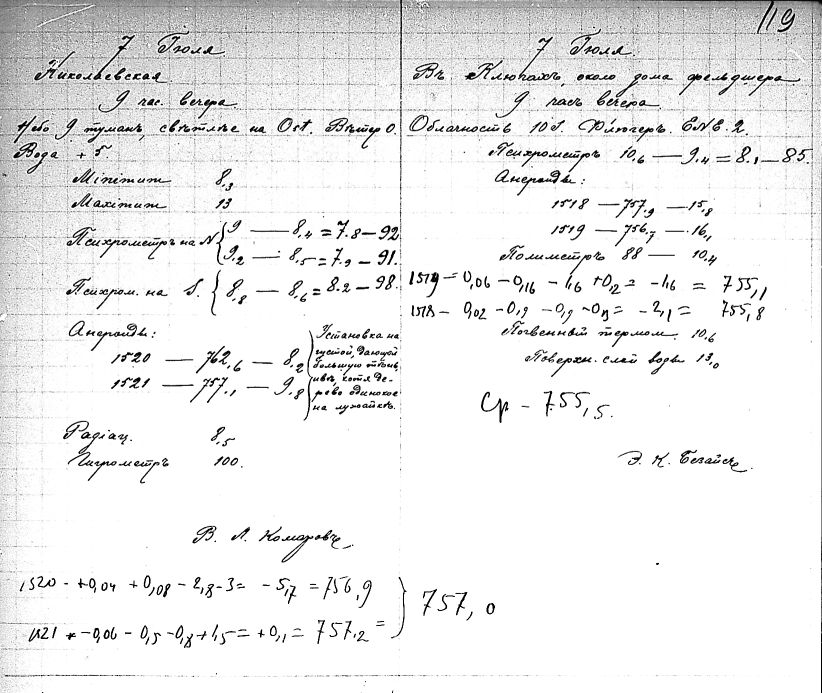 119
7 Іюля
Николаевская
9 час. вечера
Небо 9 туманъ, свѣтлѣе на Ost. Вѣтер 0.
Вода + 5.
Minimum 8,3
Maximum 13
Психрометръ на N { 9 — 8,4 = 7.8 — 92
9,2 — 8,5 = 7,9 — 91.
Психром. на S. { 8,8 — 8,6 = 8.2 — 98.
Анероиды:
1520 — 762,6 — 8,2
1521 — 757,1 — 9,8
Установка на
густой, дающой
большую тѣнь,
ивѣ, хотя де-
рево одинокое
на лужайкѣ.
Радіац. 8,5
Гигрометръ 100.
В. Л. Комаровъ
1520 - +0,04 + 0,08 - 2,8 - 3 = - 5,7 = 756,9
1521 - -0,06 - 0,5 - 0,8 + 1,5 = + 0,1 = 757,2 =
} 757,0
7 Іюля.
Въ Ключахъ, около дома фельдшера
9 часъ вечера
Облачность 10 S. Флюгеръ. ENE. 2.
Психрометръ 10,6 — 9,4 = 8,1 — 85.
Анероиды:
1518 — 757,9 — 15,8
1519 — 756,7 — 16,1
Полиметръ 88 — 10,4
1519 - 0,06 - 0,16 - 1,6 + 0,2 = - 1,6 = 755,1
1518 - 0,02 - 0,9 - 0,9 - 0,3 = - 2,1 = 755,8
Почвенный термом. 10,6
Поверхн. слой воды 13,0
Ср - 755,5.
Э. К. Безайсъ.